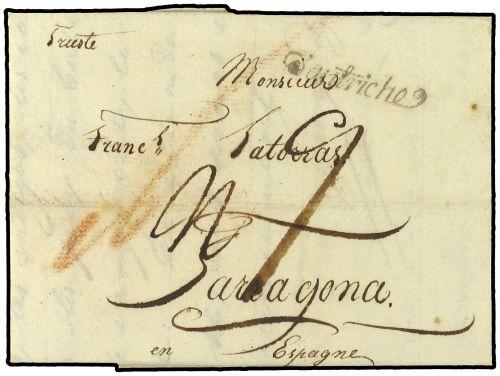 Trieste
d'autriche
Monsieur
Franc.ᵗ Latorras
Tarragona.
en Espagne